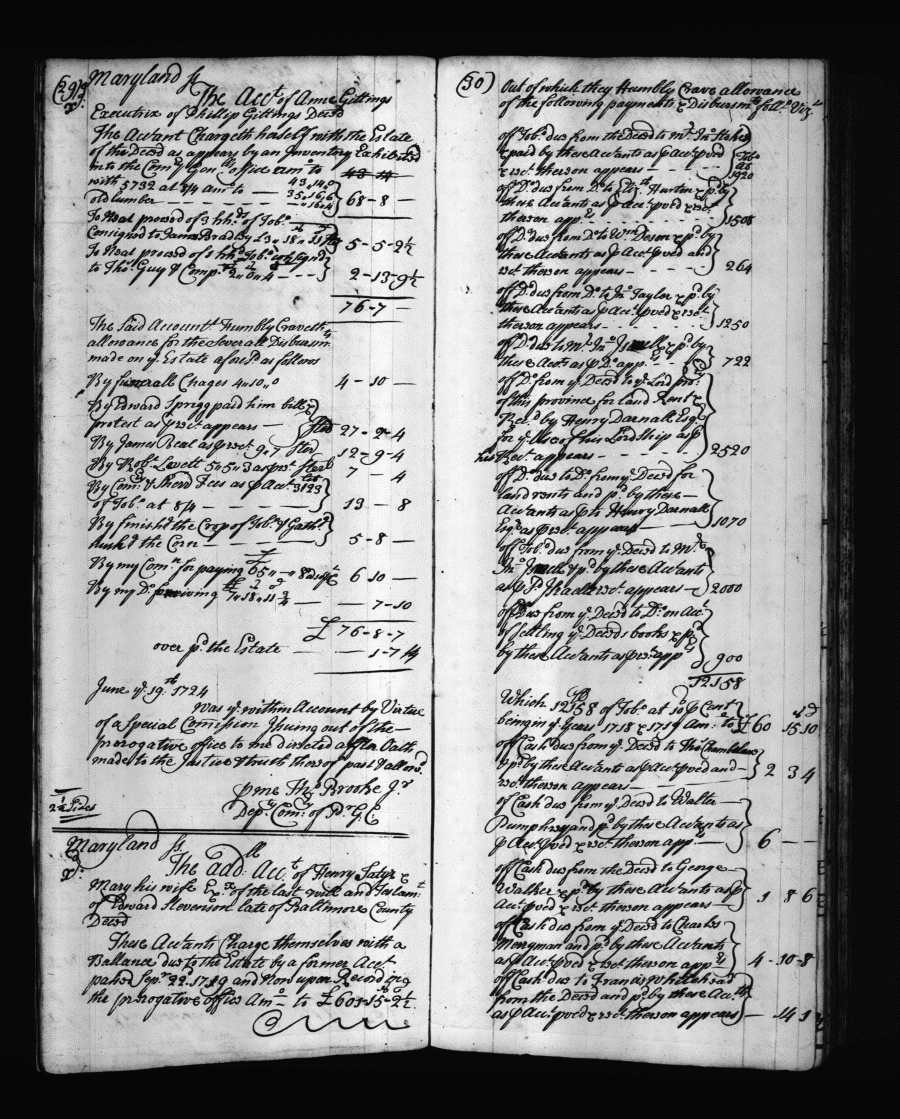 (29)
Maryland ss
The Acct. of Anne Gittings
Executrix of Phillip Gittings Decd
The Accant Chargeth herself with the Estate
of the Decd as appears by an Inventory Exhibited
into the Comry Genlls office amo to
with 5732 at 8/4 amo to 43,,14,,0
old lumber 68-8-
To Neat proceed of 3 hhds of Tobo
Consigned to James Bradley £3,,18,,11 5-5-2½
To Neat proceed of 3 hhds Tobo consignd
to Thos Guy & Compa 2-13-9½
76-7-
The Said Accountt Humbly Craveth
allowance for the Severall Disbursmts
made on ye Estate aforesd as follows
By funerall Chages 4,,10,,0 4-10-
By Edward Sprigg paid him bill
protest as p rect appears Ster 27-2-4
By James Beal as p rect 9,,7 Ster 12-9-4
By Robt Levett 5,,5,,3 as p rect Sterl 7-4
By Comry & Sherd Fees as p Acct 3123
of Tobo at 8/4 13-8
By finishd the Crop of Tobo & Gathd
huskd the Corn 5-8-
By my Comn for paying 6 10-
By my Do receiving 7-10
£76-8-7
over pd the Estate 1-7
June ye 19th 1724
Was ye within Account by Virtue
of a Special Comission Issuing out of the
Prerogative office to me directed after Oath
made to the Justice & truth thereof past & allowd.
p me Thos Brooke Jr
Depty Comry of Pr G. C.
2¼ Sides
Maryland ss
The addll Acct of Henry Satyr &
Mary his wife Exx of the last will and Testamt
of Edward Stevenson late of Baltimore County
Decd
These Accants Charge themselves with a
Ballance due to the Estate by a former Acct
passed Sepr 22d 1719 and Now upon Record in
the prerogative office Amo to £603-15-2½
(30)
Out of which they Humbly Crave allowance
of the following payments & Disbursmts follo Vizt
off Tobo due from the Decd to mr Jno
& paid by these Accants as p Acct pved
& rect thereon appears Tobo 1920
off Do due from Do to Hunter & pd by
these Accants as p Acct pved & rect
thereon apprs 1508
off Do due from Do to Wm Deson & pd by
these Accants as p Acct pved and
rect thereon appears 264
off Do due from Do to Jno Taylor & pd by
these Accants as p Acct pved & rect
thereon appears 1250
off Do due to Mr Jno & pd by
these Accts as p Do apprs 722
off Do from ye Decd to ye Lord propr
of this province for land Rent &
Recd by Henry Darnall Esqr
for ye Use of his Lordship as p
his Rect appears 2520
off Do due to Do from ye Decd for
land rents and pd by these
Accants as p to Henry Darnall
Esqr as p rect appears 1070
off Tobo due from ye Decd to Mr
Jno & pd by these Accants
as p rect appears 2000
off Do due from ye Decd to Do on Acct
of Settling ye Decds books & pd
by these Accants as p rect app 900
12158
Which 12158 of Tobo at 10 p Cent
being in ye Years 1718 & 1719 Amo to £60 15 10
off Cash due from ye Decd to Tho Chamberlane
& pd by these Accants as p Acct pved and
rect thereon appears 2 3 4
of Cash due from ye Decd to Walter
Pumphrey and pd by these Accants as
p Acct pved & rect thereon app 6
off Cash due from the Decd to George
Walker & pd by these Accants as p
Acct pved & rect thereon appears 1 8 6
off Cash due from ye Decd to Charles
Merryman and pd by these Accants
as p Acct pved & rect thereon apprs 4-10-8
off Cash due to Francis Whitehead
from the Decd and pd by these Accts
as p Acct pved & rect thereon appears 14 3